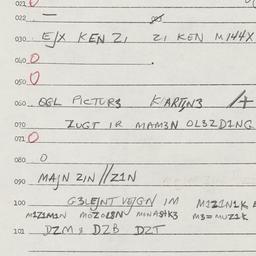 021 0
022 —
030 E/X KEN ZI ZI KEN M144X
040 0
050 0
060 GGL PICTURS KARTJN3
070 ZUGT IR MAM3N OL3ZDING
071 0
080 0
090 MAJN ZIN // Z1N
100 G3LEJNT VEJGN IM MIZIN1K
MIZIM1N MOZOL8N MONASTK3 M3=MUZ1K
101 DZM & DZB DZT